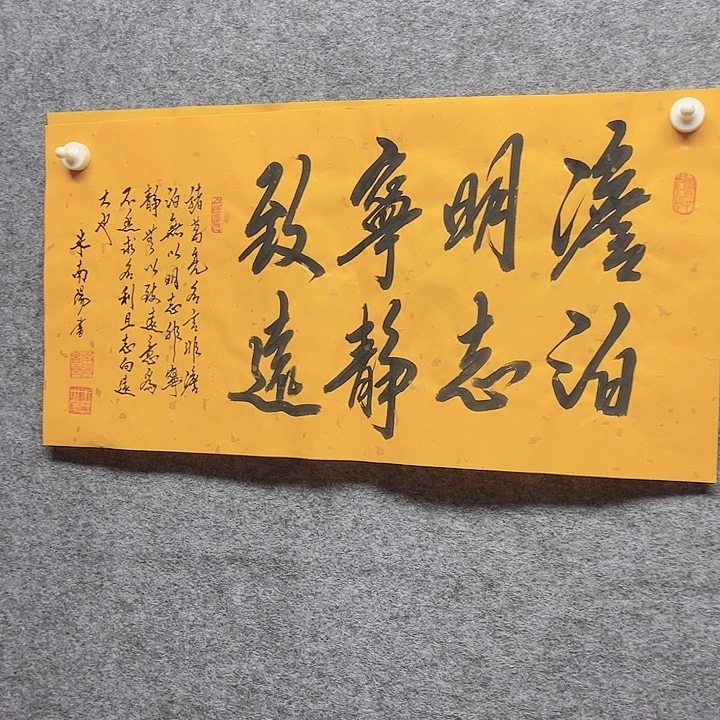 澹泊
明志
寧靜
致遠
諸葛亮名言非澹
泊無以明志非寧
靜無以致遠意為
不追求名利且志向遠
大也
南陽書